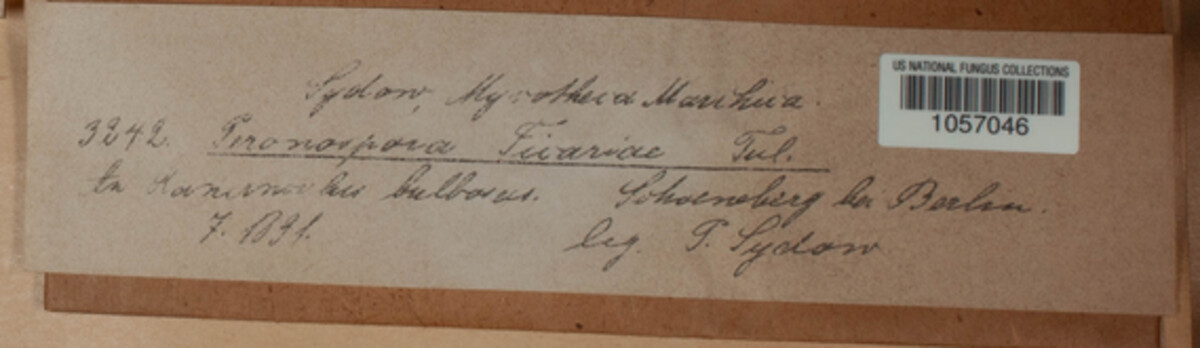 Sydow, Mycotheca Marchica.
3242. Peronospora Ficariae Tul.
In Ranunculus bulbosus. Schoeneberg bei Berlin.
7. 1891. leg. P. Sydow
US NATIONAL FUNGUS COLLECTIONS
1057046